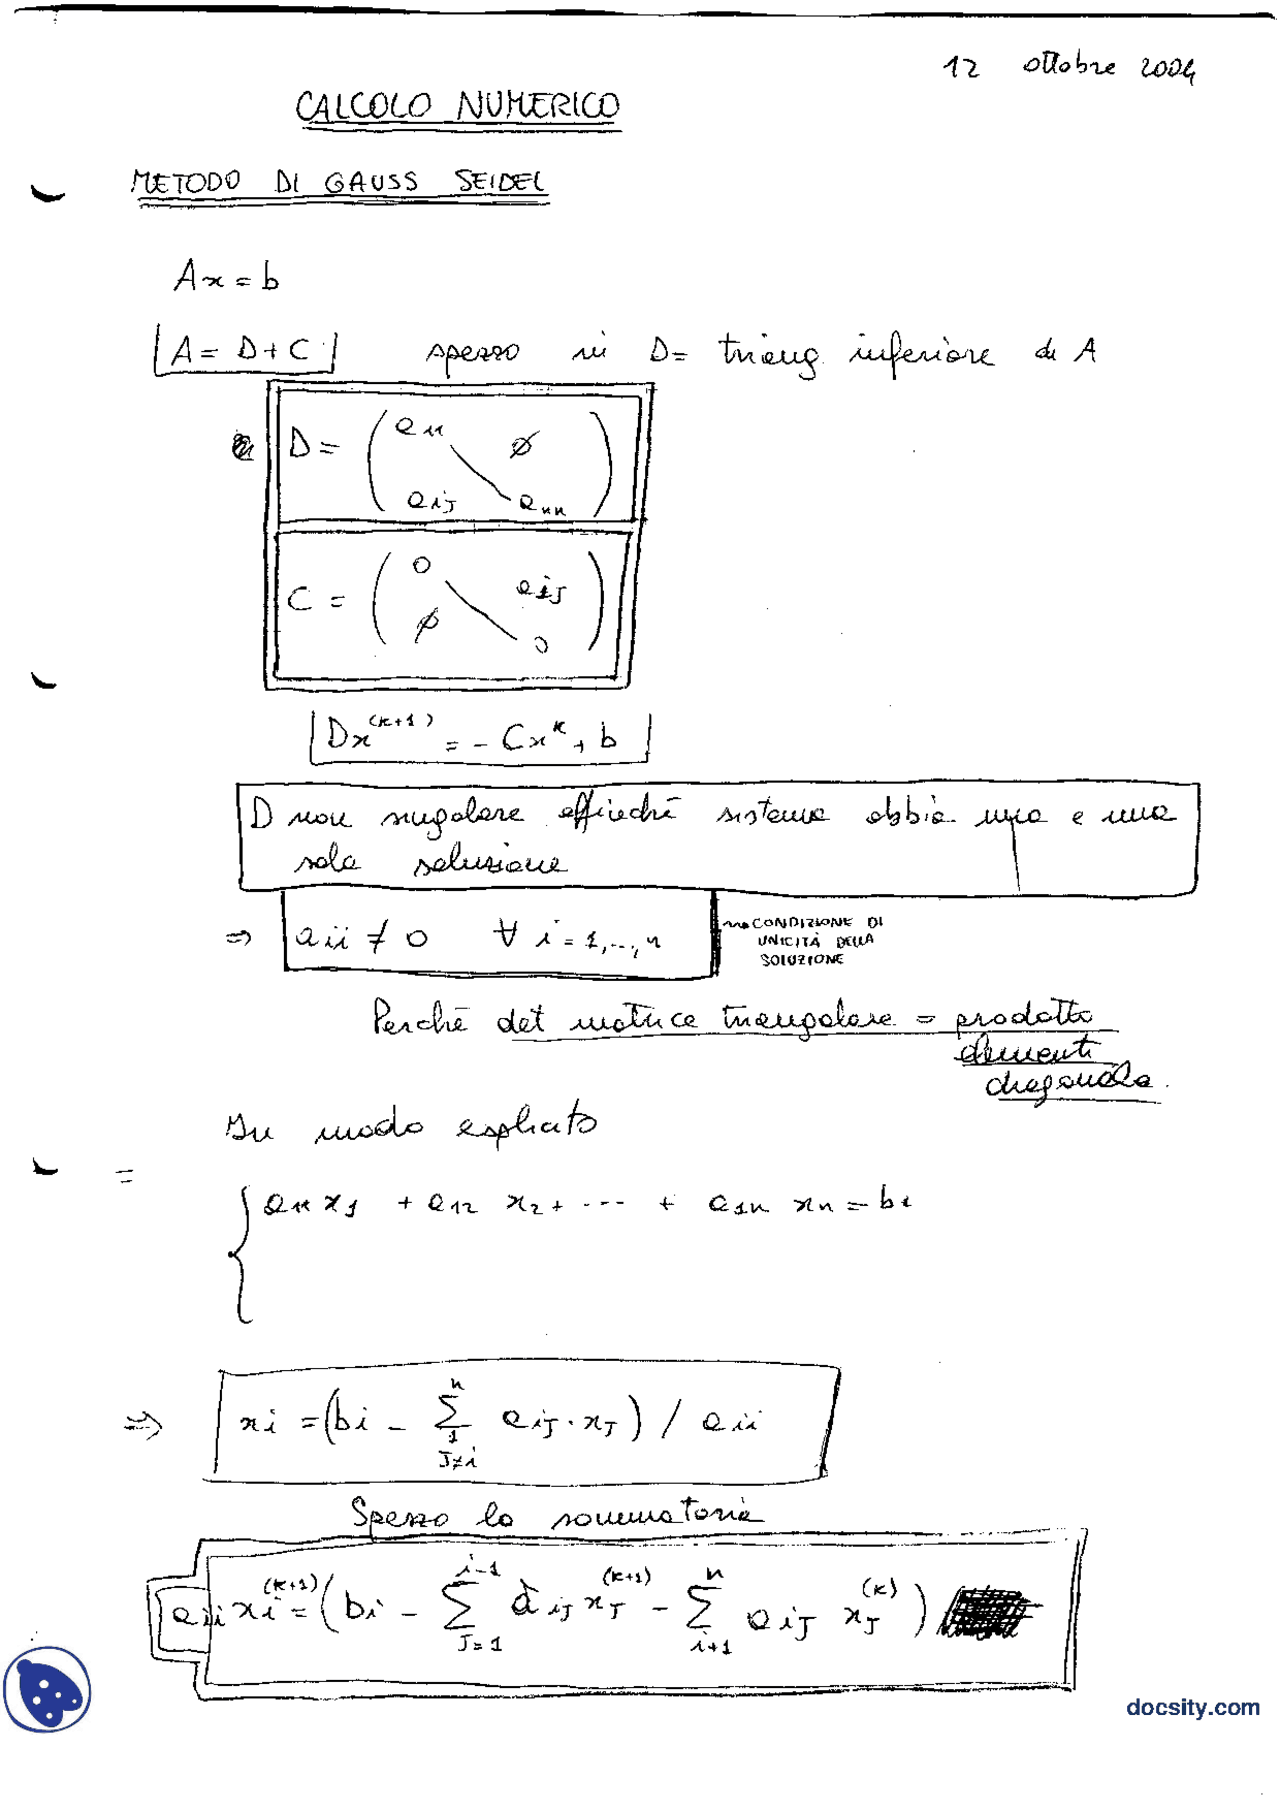 12 ottobre 2004
CALCOLO NUMERICO
METODO DI GAUSS SEIDEL
Ax = b
A = D + C spezzo in D = triang. inferiore di A
D = ( a11 ∅
aij ann )
C = ( 0 aij
∅ 0 )
Dx^(k+1) = - Cx^k + b
D non singolare affinchè sistema abbia una e una
sola soluzione
⇒ aii ≠ 0 ∀ i = 1,...,n
CONDIZIONE DI
UNICITÀ DELLA
SOLUZIONE
Perchè det matrice triangolare = prodotto
elementi
diagonale.
In modo esplicito
=
{ a11 x1 + a12 x2 + ... + a1n xn = b1
⇒ xi = (bi - Σ^n_1 J≠i aiJ · xJ) / aii
Spezzo la sommatoria
aii xi^(k+1) = (bi - Σ^i-1_J=1 aiJ xJ^(k+1) - Σ^n_i+1 aiJ xJ^(k))
docsity.com